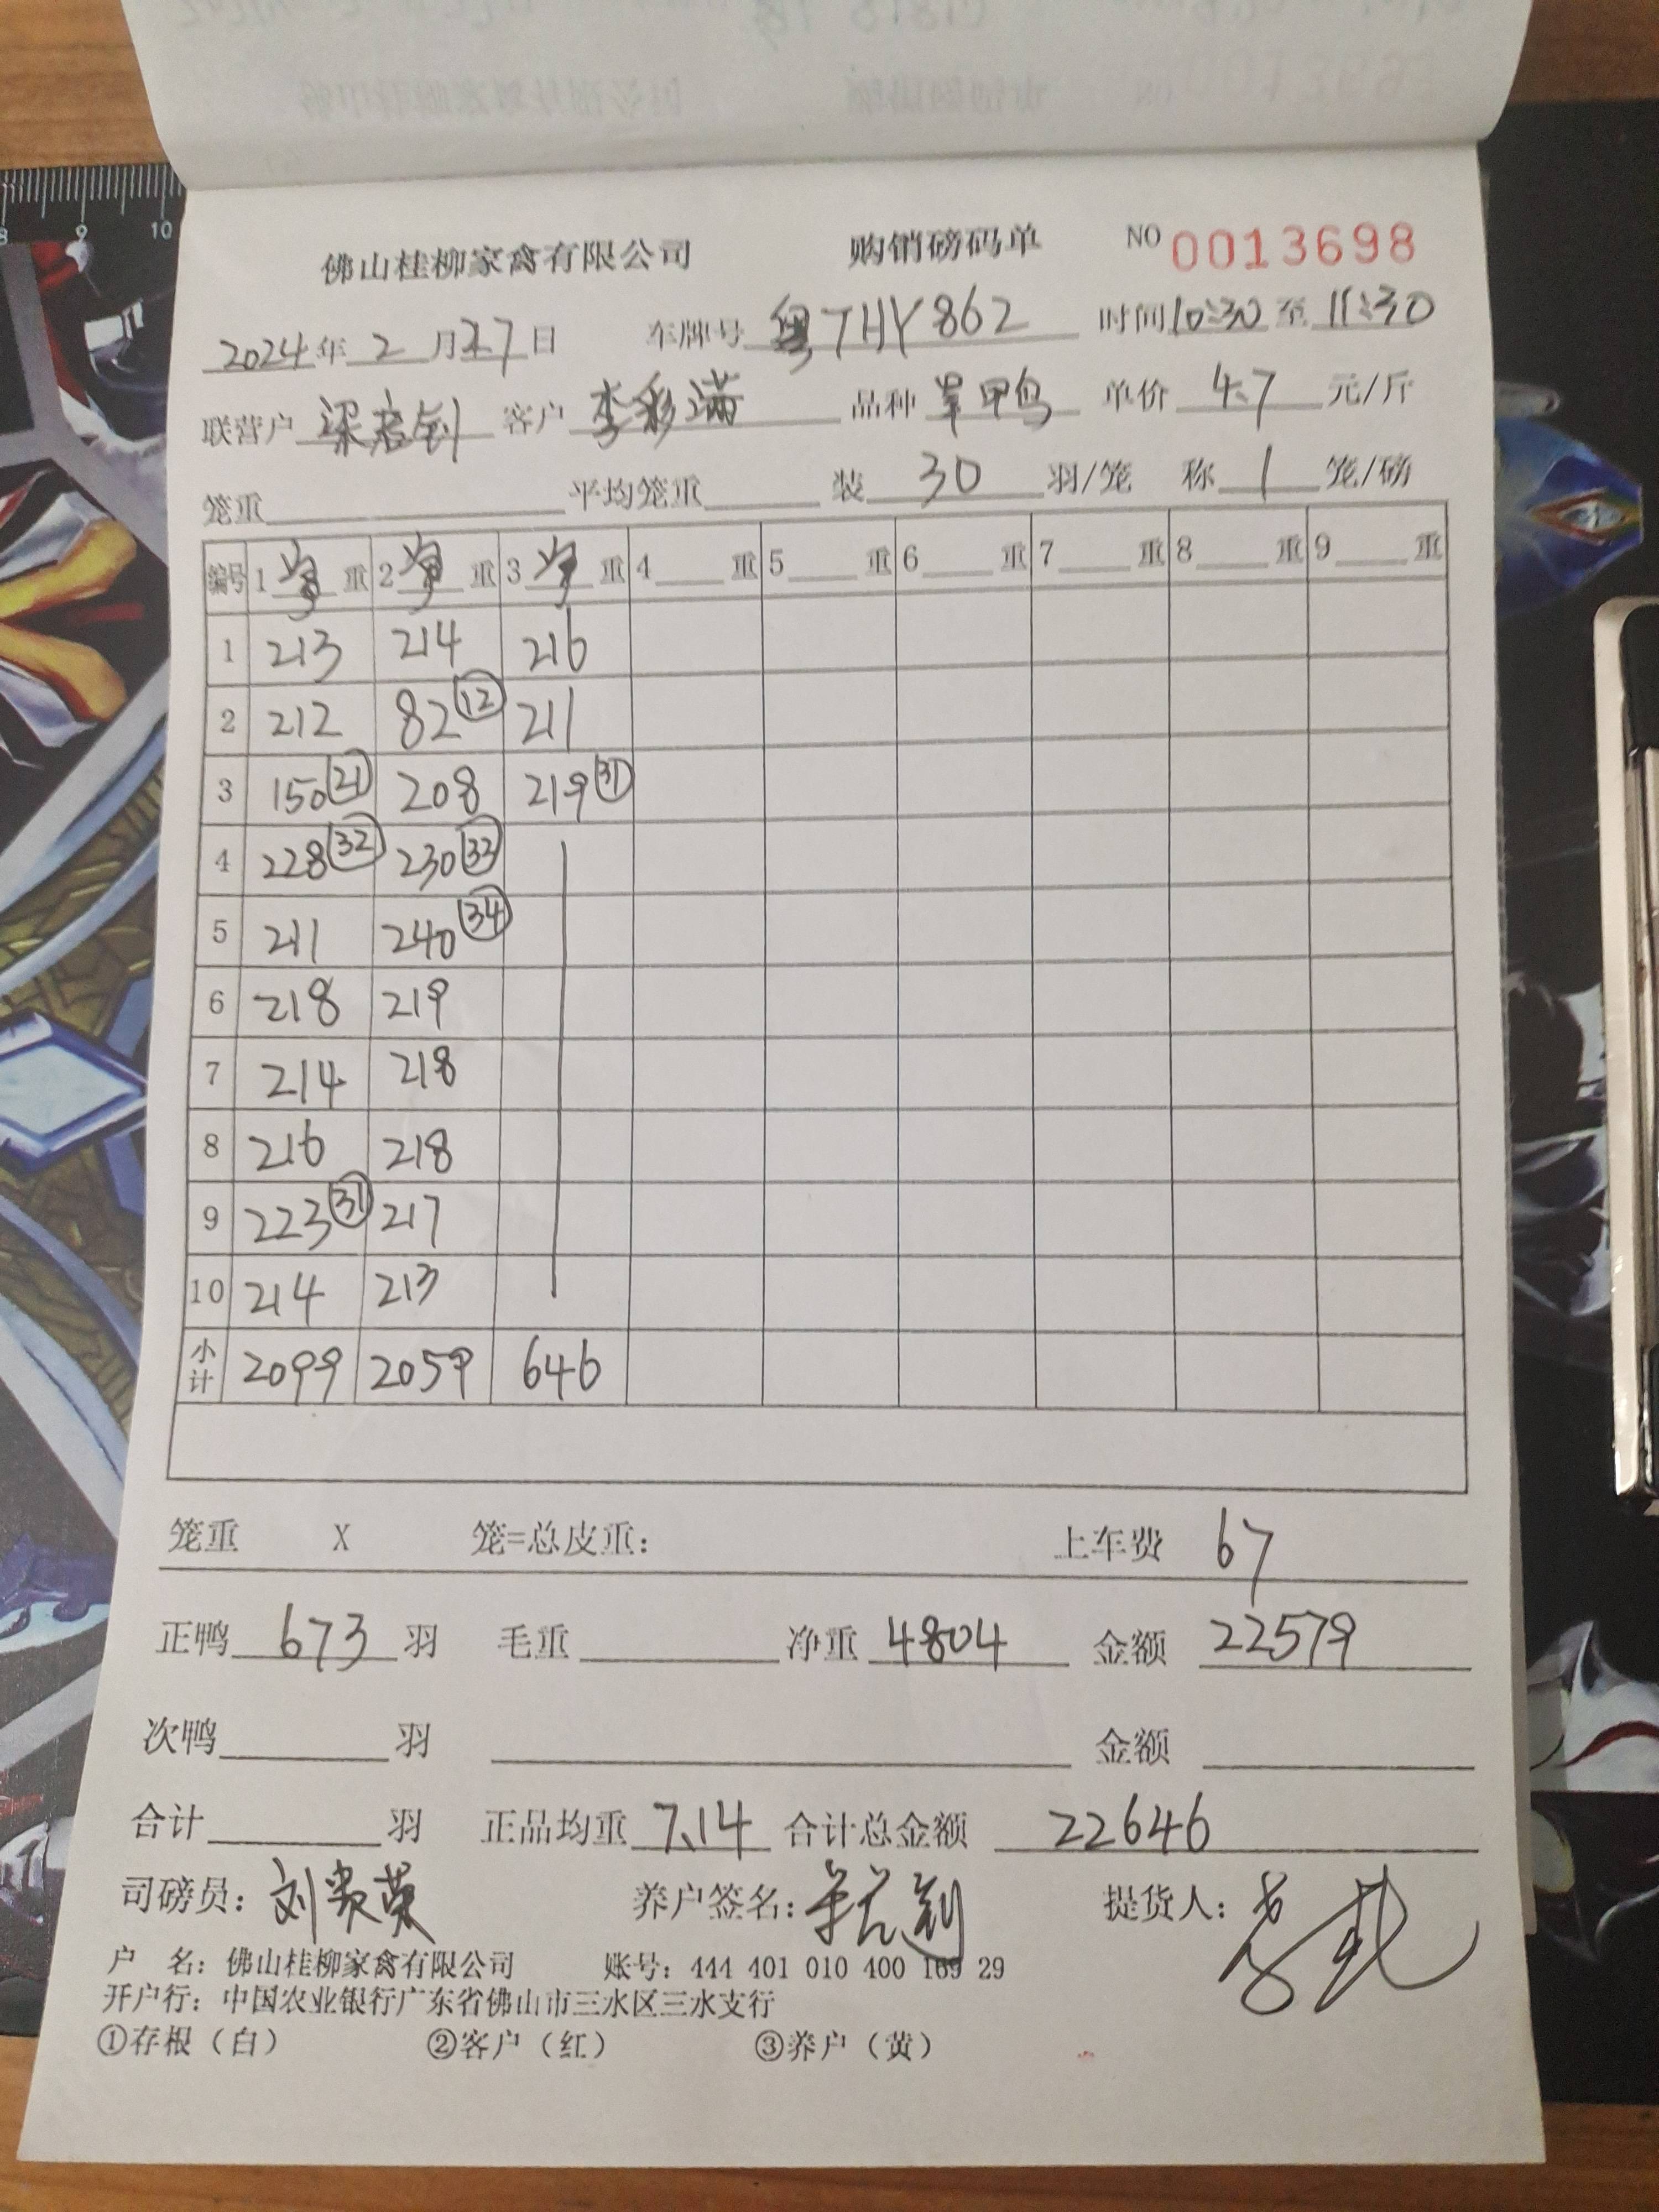 佛山桂柳家禽有限公司 购销磅码单 NO 0013698
2024年 2 月27日 车牌号 粤THY862 时间10:30 至 11:30
联营户 客户 李彩满 品种 单价 4.7 元/斤
笼重 平均笼重 装 30 羽/笼 称 1 笼/磅
编号 1 重 2 重 3 重 4 重 5 重 6 重 7 重 8 重 9 重
1 213 214 216
2 212 82 ⑫ 211
3 150 ㉑ 208 219 ㉛
4 228 ㉜ 230 ㉜
5 211 240 ㉞
6 218 219
7 214 218
8 216 218
9 223 ㉛ 217
10 214 213
小计 2099 2059 646
笼重 X 笼=总皮重: 上车费 67
正鸭 673 羽 毛重 净重 4804 金额 22579
次鸭 羽 金额
合计 羽 正品均重 7.14 合计总金额 22646
司磅员: 刘贵荣 养户签名: 提货人:
户 名: 佛山桂柳家禽有限公司 账号: 444 401 010 400 169 29
开户行: 中国农业银行广东省佛山市三水区三水支行
①存根（白） ②客户（红） ③养户（黄）
8 9 10